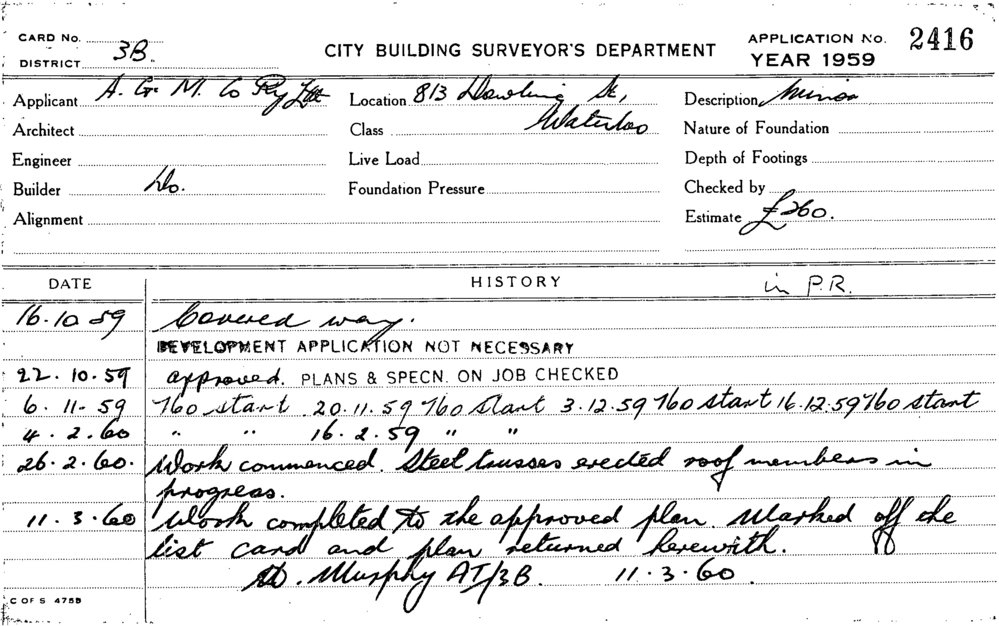 CARD No.
DISTRICT 3B.
CITY BUILDING SURVEYOR'S DEPARTMENT
APPLICATION No. 2416
YEAR 1959
Applicant A. G. M. Co Pty Ltd Location 813 Dowling St, Description Minor
Architect Class Waterloo Nature of Foundation
Engineer Live Load Depth of Footings
Builder Do. Foundation Pressure Checked by
Alignment Estimate £260.
DATE HISTORY in P.R.
16.10 59 Covered way.
DEVELOPMENT APPLICATION NOT NECESSARY
22.10.59 approved. PLANS & SPECN. ON JOB CHECKED
6.11.59 No start 20.11.59 No start 3.12.59 No start 16.12.59 No start
4.2.60 " " 16.2.59 " "
26.2.60. Work commenced. Steel trusses erected roof members in
progress.
11.3.60 Work completed to the approved plan. Marked off the
list card and plan returned herewith.
Murphy AI/3B. 11.3.60.
C OF S 475B